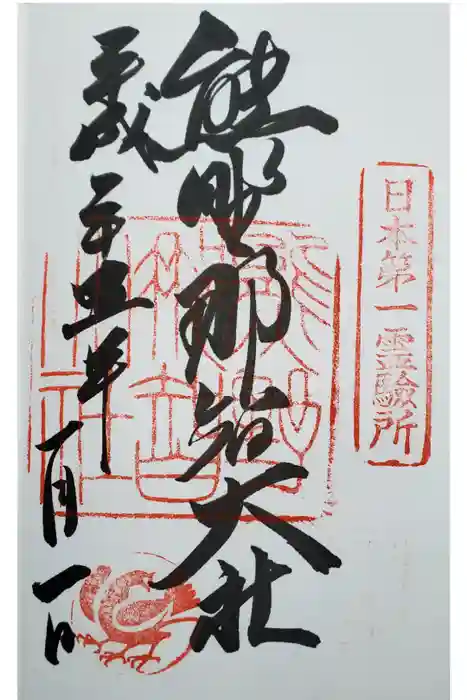 日本第一霊驗所
熊野那智大社
平成二十五年一月一日